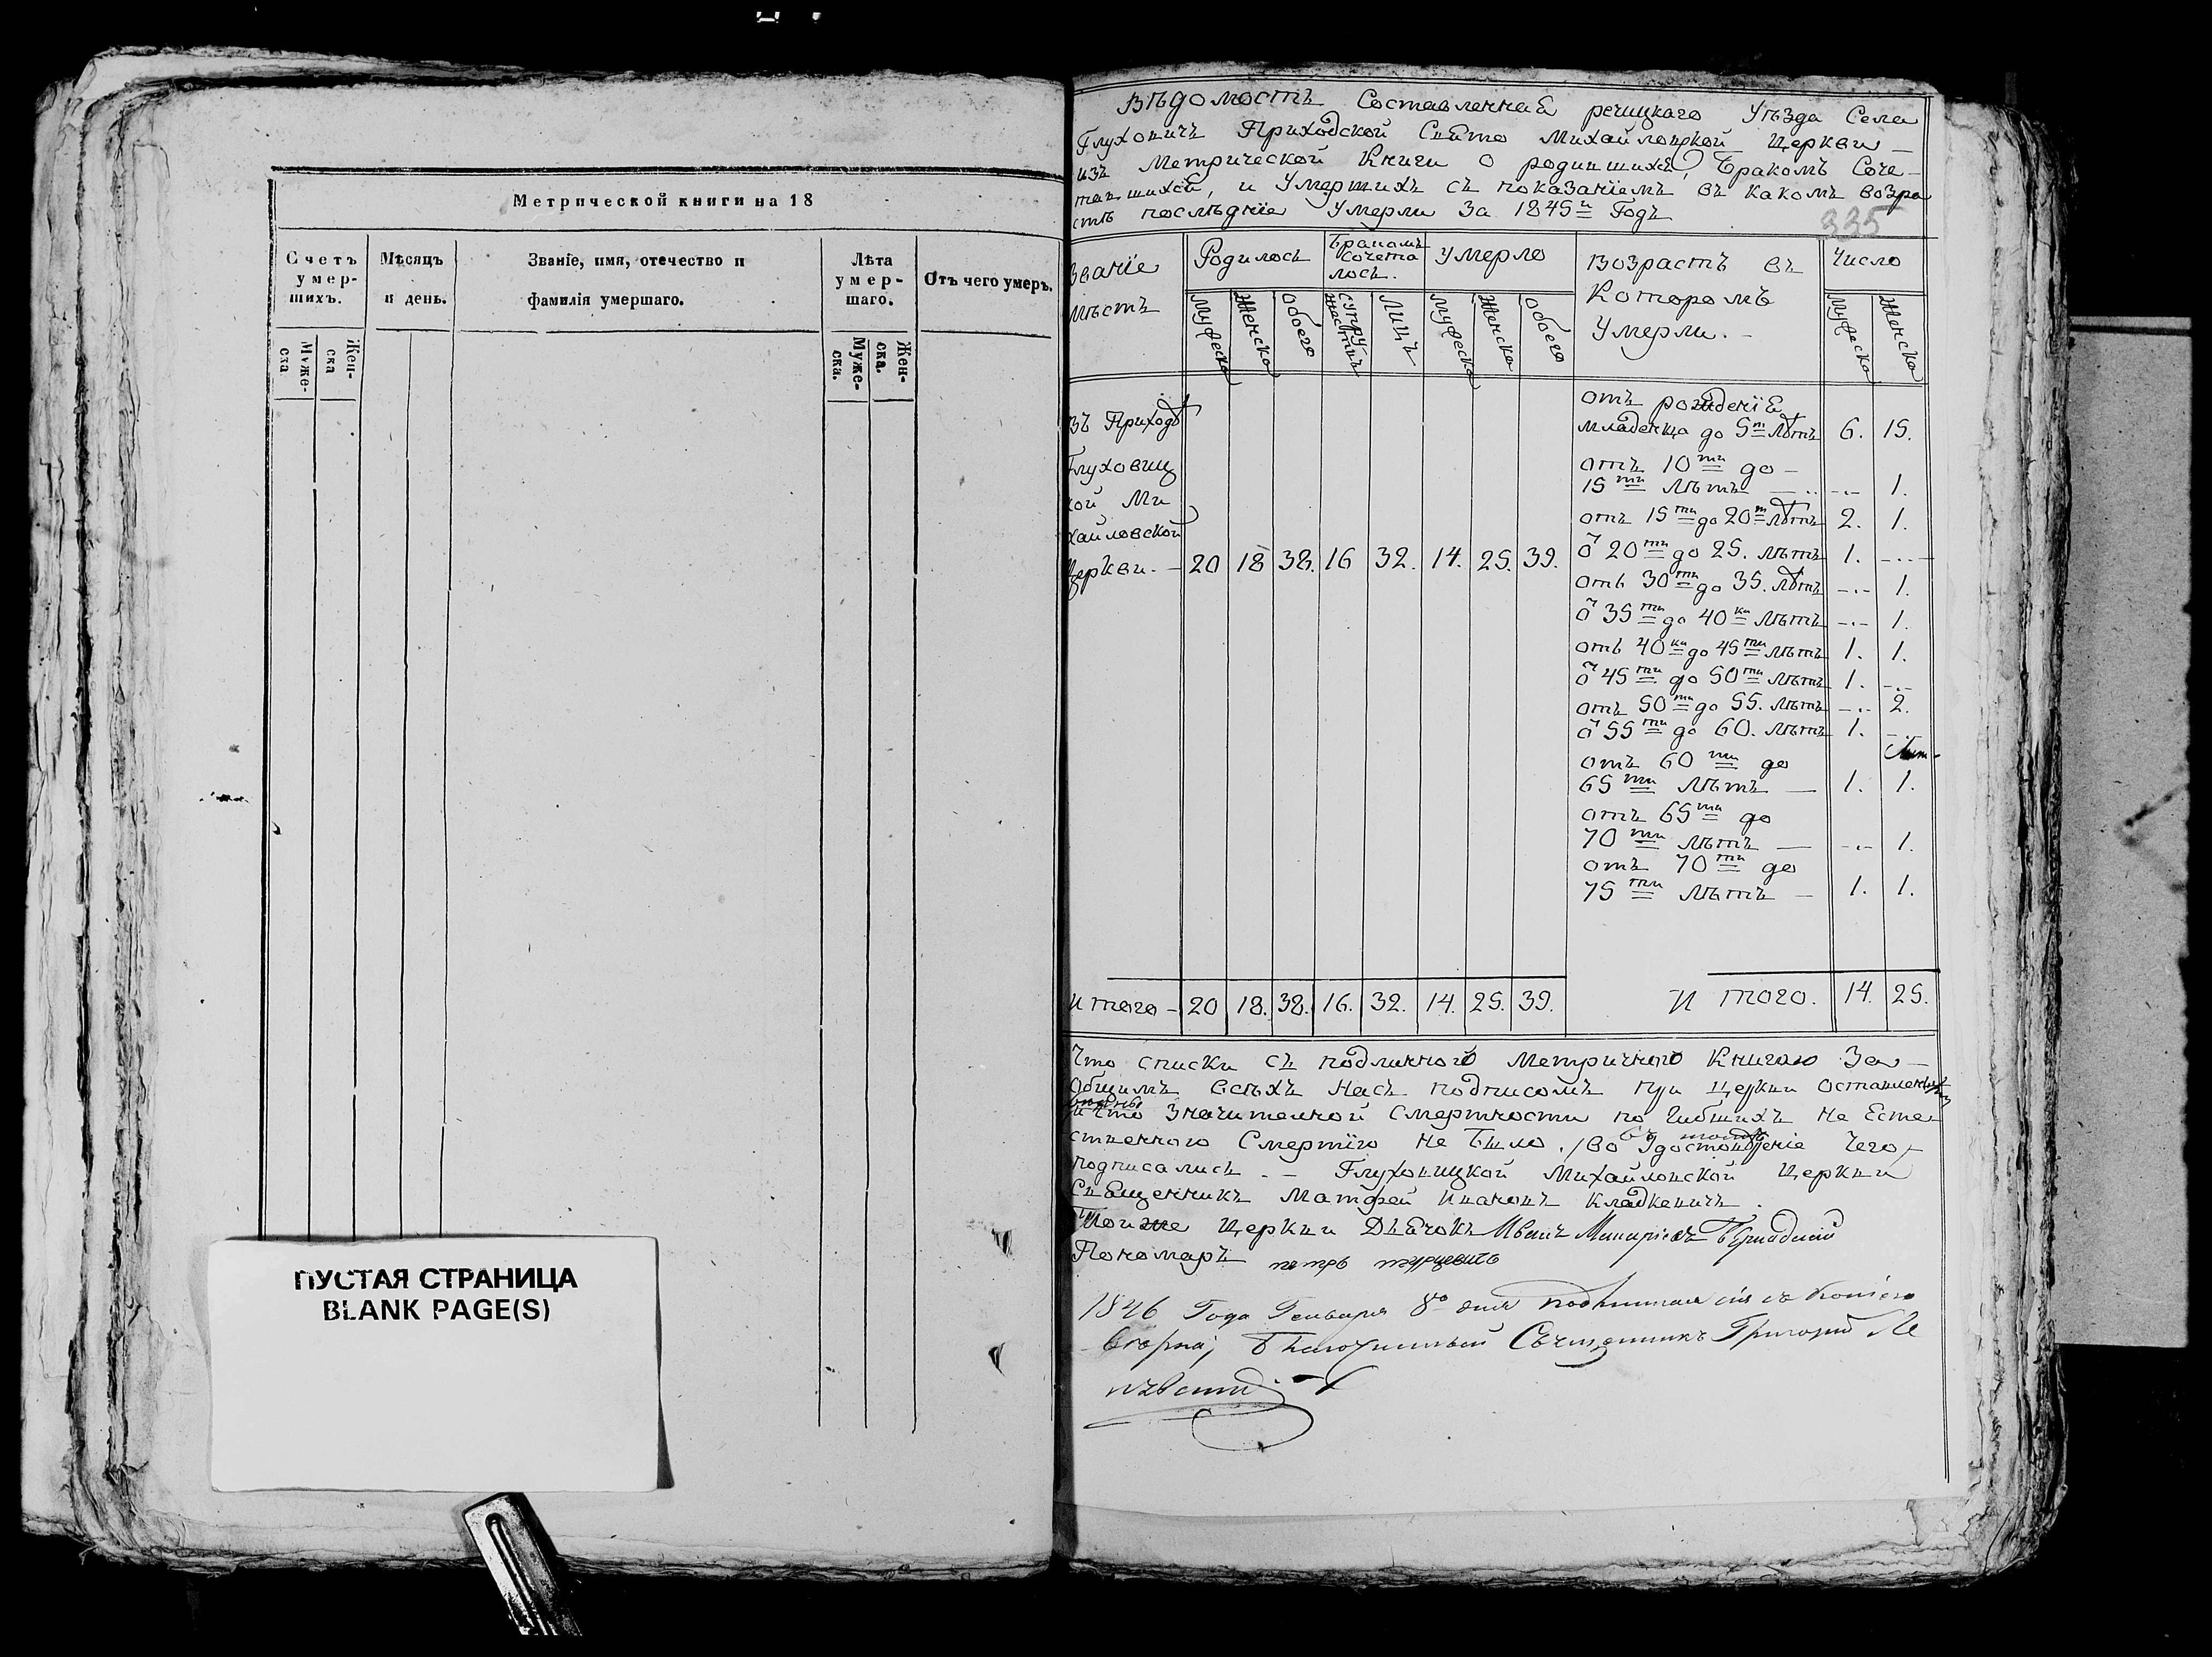 Метрической книги на 18
Счетъ умер-шихъ.
Мѣсяцъ и день.
Званіе, имя, отечество и фамилія умершаго.
Лѣта умер-шаго.
Отъ чего умеръ.
Муже-ска
Жен-ска
Муже-ска.
Жен-ска.
ПУСТАЯ СТРАНИЦА
BLANK PAGE(S)
Вѣдомость Составленная речицкаго Уѣзда Села
Глуховичъ Приходской Свято Михайловской Церкви –
изъ Метрической Книги о родившихся, Бракомъ Соче-
тавшихся, и Умершихъ съ показаніемъ въ какомъ возра
стѣ послѣдніе Умерли За 1845й Годъ
335
Званіе мѣстъ
Родилось
Бракомъ Сочета лось.
Умерло
Возрастъ въ Которомъ Умерли. –
Число
Мужеска
Женска
Обоего
Супружествъ
Лицъ
Мужеска
Женска
Обоего
Мужеска
Женска
въ Приходѣ
Глуховиц
кой Ми
хайловской
Церкви. – 20 18 38. 16 32. 14. 25. 39.
отъ рожденія
младенца до 5ти лѣтъ 6. 15.
отъ 10ти до –
15ти лѣтъ – 1.
отъ 15ти до 20ти лѣтъ 2. 1.
о 20ти до 25. лѣтъ 1. –
отъ 30ти до 35. лѣтъ – 1.
о 35ти до 40ка лѣтъ – 1.
отъ 40ка до 45ти лѣтъ 1. 1.
о 45ти до 50ти лѣтъ 1. –
отъ 50ти до 55. лѣтъ – 2.
о 55ти до 60. лѣтъ 1. –
отъ 60ти до
65ти лѣтъ – 1. 1.
отъ 65ти до
70ти лѣтъ – 1.
отъ 70ти до
75ти лѣтъ – 1. 1.
Итого – 20 18. 38. 16. 32. 14. 25. 39. И того. 14. 25.
Что списки съ подлинного Метричного Книгою За –
Общимъ Всѣхъ Насъ подписомъ при Церкви
и что Значителной Смертности по Гибшихъ не Есте
ственного Смертїю не Было. Во Удостовѣреніе Чего
подписались. – Глуховицкой Михайловской Церкви
Священникъ Матфей Ивановъ Кладкевичъ.
Тойже Церкви Дьячокъ Иванъ
Пономаръ петръ турцевичъ
1846 Года Генваря 8го дня сія съ Копіею
Благочинный Священникъ Григорій